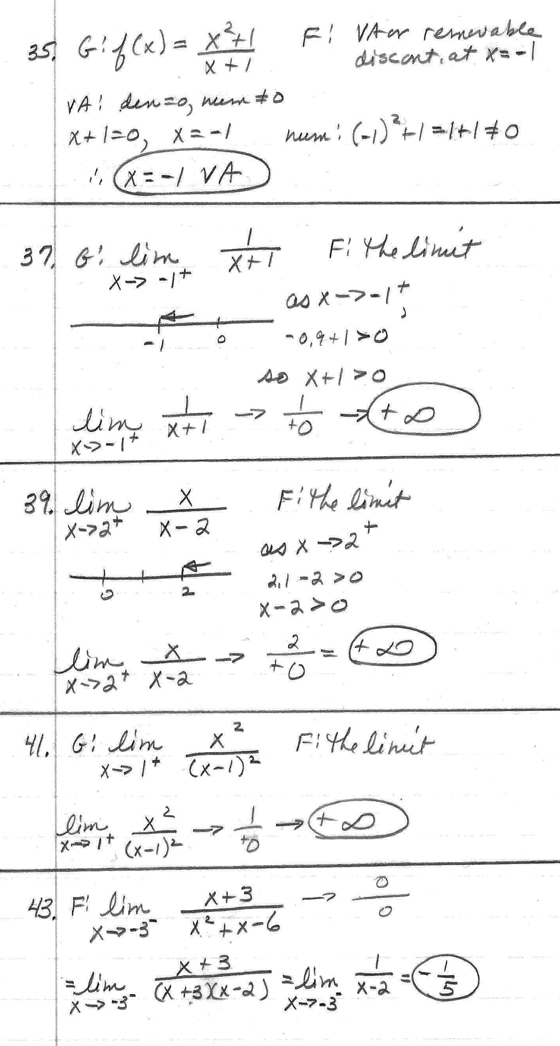 35. G: f(x) = x²+1 / x+1   F: VA or removable
discont. at x=-1
VA: den=0, num≠0
x+1=0, x=-1   num: (-1)²+1=1+1≠0
∴ x=-1 VA
37. G: lim x→-1⁺ 1/x+1   F: the limit
as x→-1⁺,
-1 0   -0,9+1>0
so x+1>0
lim x→-1⁺ 1/x+1 → 1/+0 → +∞
39. lim x→2⁺ x/x-2   F: the limit
as x→2⁺
0 2   2,1-2>0
x-2>0
lim x→2⁺ x/x-2 → 2/+0 = +∞
41. G: lim x→1⁺ x²/(x-1)²   F: the limit
lim x→1⁺ x²/(x-1)² → 1/+0 → +∞
43. F: lim x→-3⁻ x+3/x²+x-6 → 0/0
=lim x→-3⁻ x+3/(x+3)(x-2) =lim x→-3⁻ 1/x-2 = -1/5